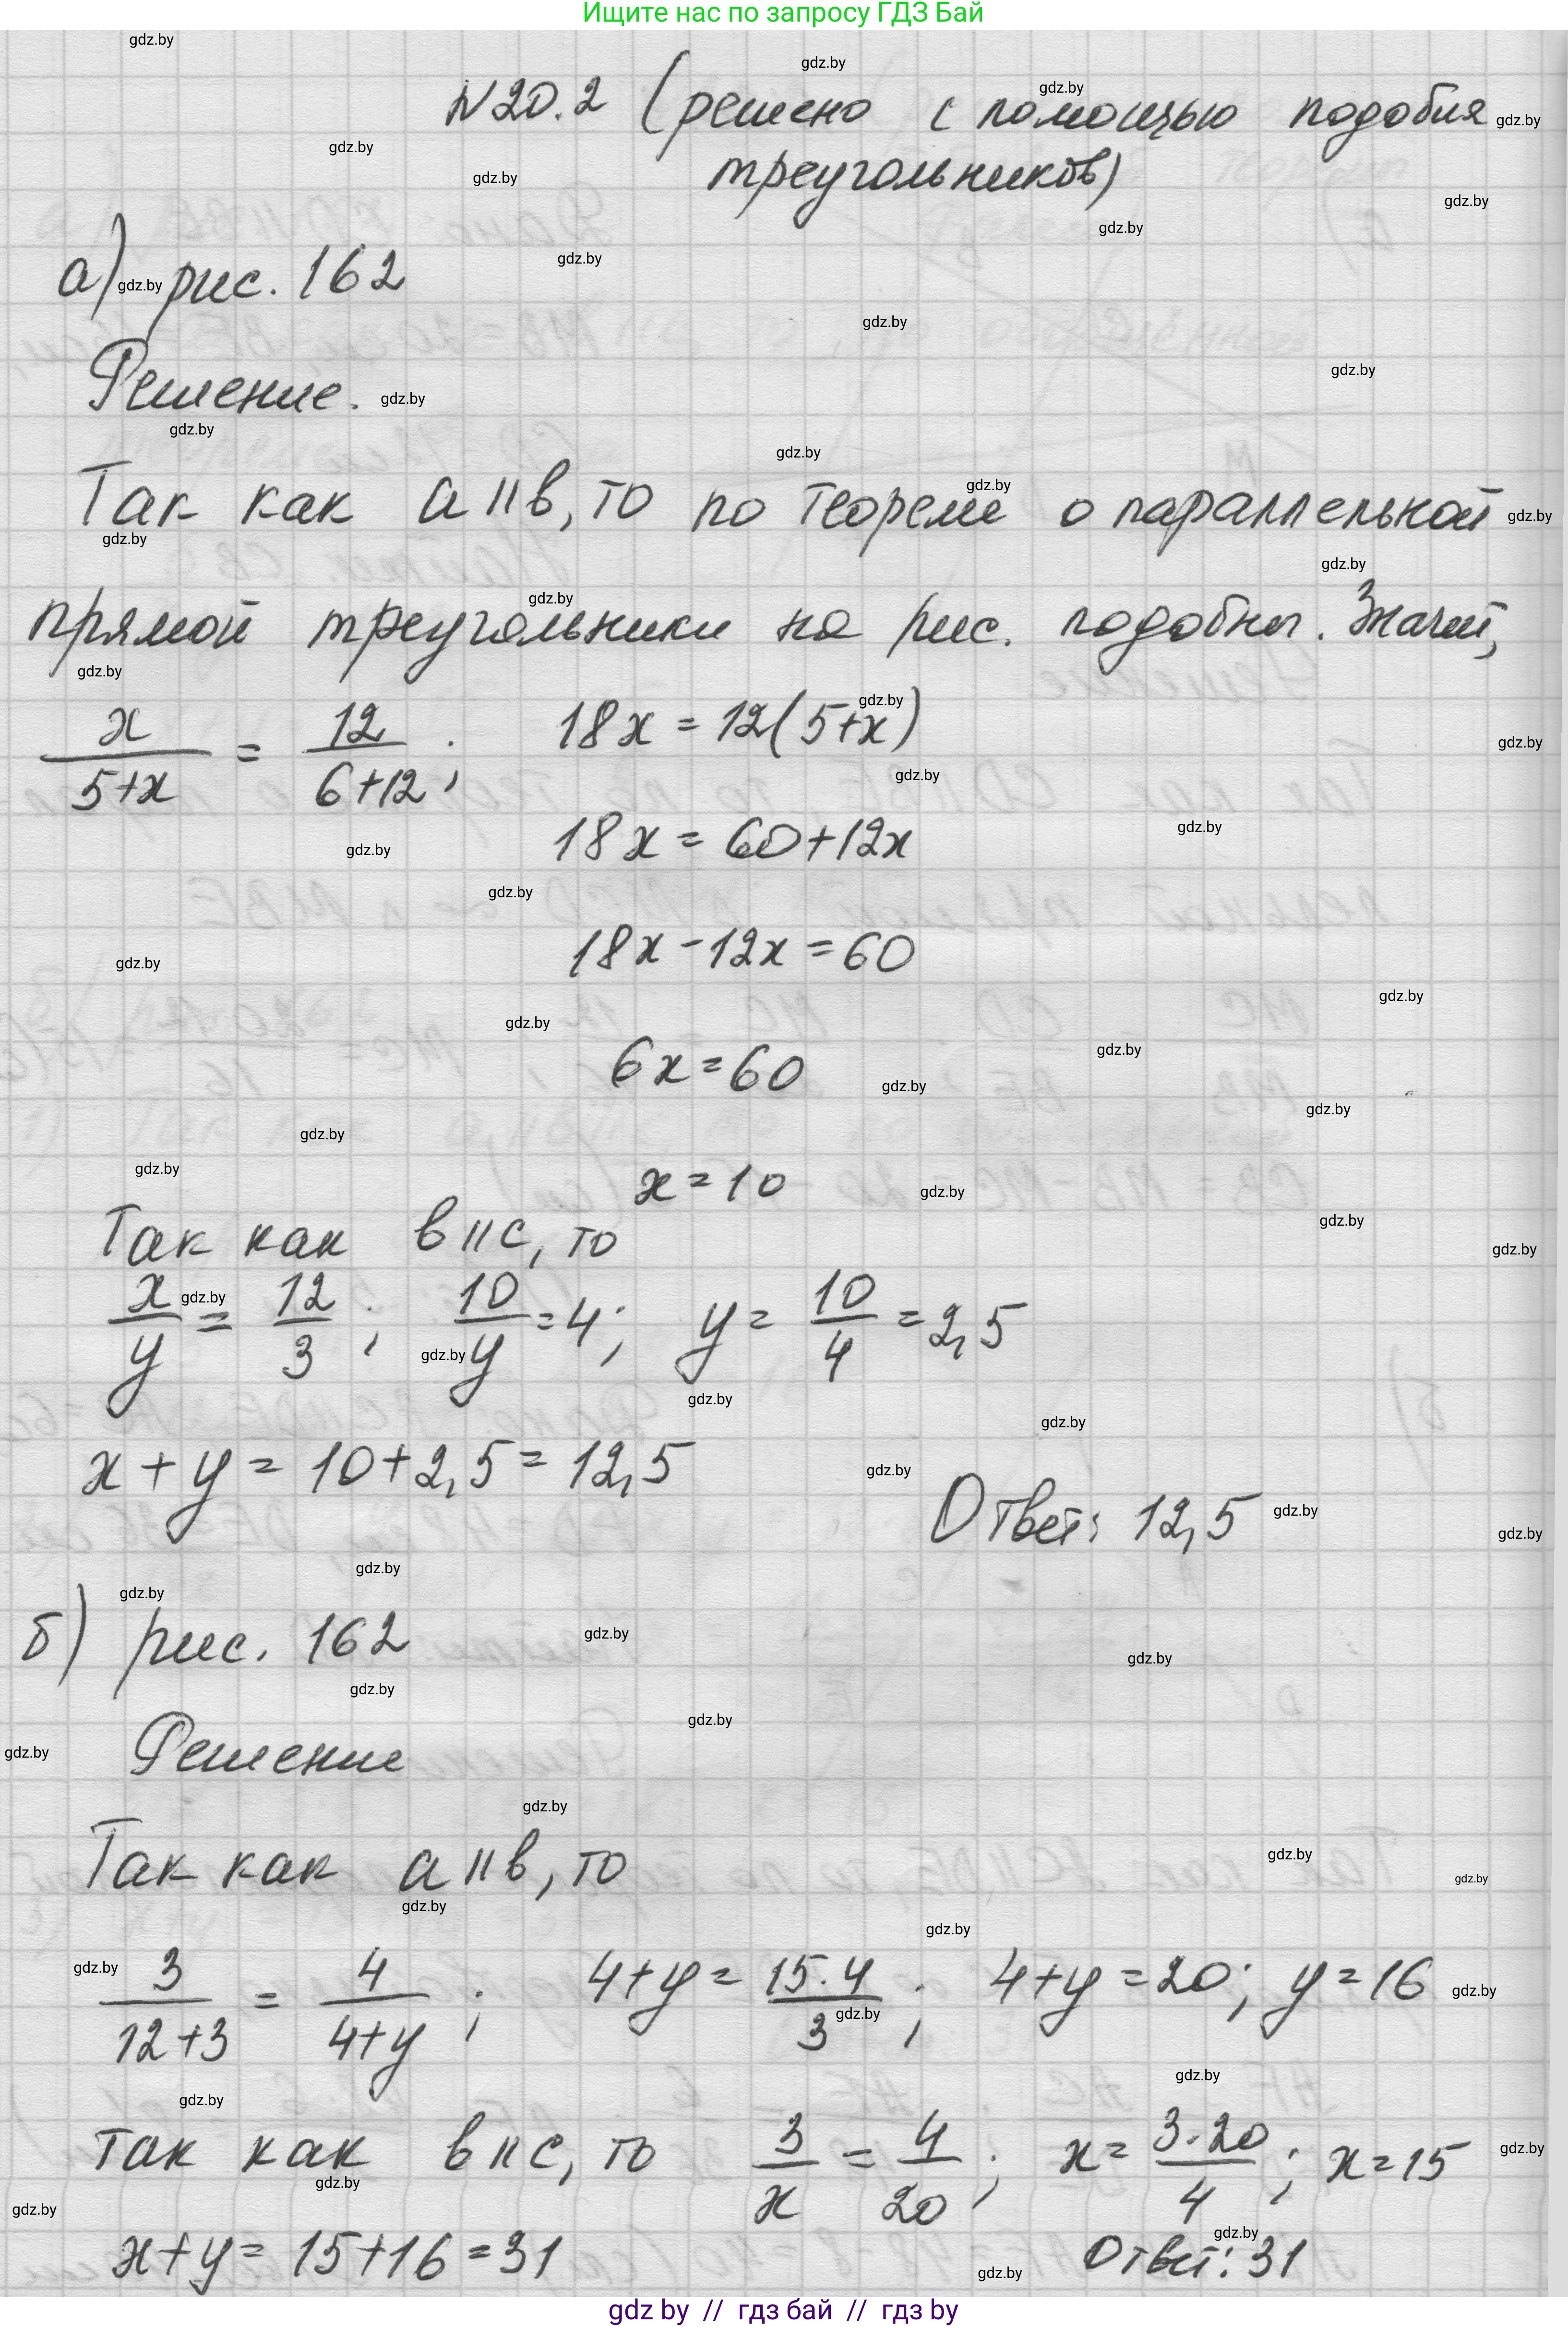 Ищите нас по запросу ГДЗ Бай
N20.2 (решено с помощью подобия
треугольников)
а) рис. 162
Решение.
Так как a || b, то по теореме о параллельной
прямой треугольники на рис. подобны. Значит,
x/(5+x) = 12/(6+12); 18x = 12(5+x)
18x = 60+12x
18x - 12x = 60
6x = 60
x = 10
Так как b || c, то
x/y = 12/3; 10/y = 4; y = 10/4 = 2,5
x + y = 10 + 2,5 = 12,5
Ответ: 12,5
б) рис. 162
Решение
Так как a || b, то
3/(12+3) = 4/(4+y); 4+y = 15·4/3; 4+y = 20; y = 16
так как b || c, то 3/x = 4/20; x = 3·20/4; x = 15
x + y = 15 + 16 = 31 Ответ: 31
gdz by // гдз бай // гдз by